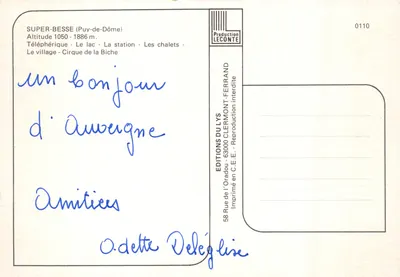 SUPER-BESSE (Puy-de-Dôme)
Altitude 1050 - 1886 m.
Téléphérique - Le lac - La station - Les chalets -
Le village - Cirque de la Biche
Production
LECONTE
0110
un bonjour
d'Auvergne
Amitiées
Odette Deléglise
EDITIONS DU LYS
58 Rue de l'Oradou - 63000 CLERMONT-FERRAND
Imprimé en C.E.E. - Reproduction interdite